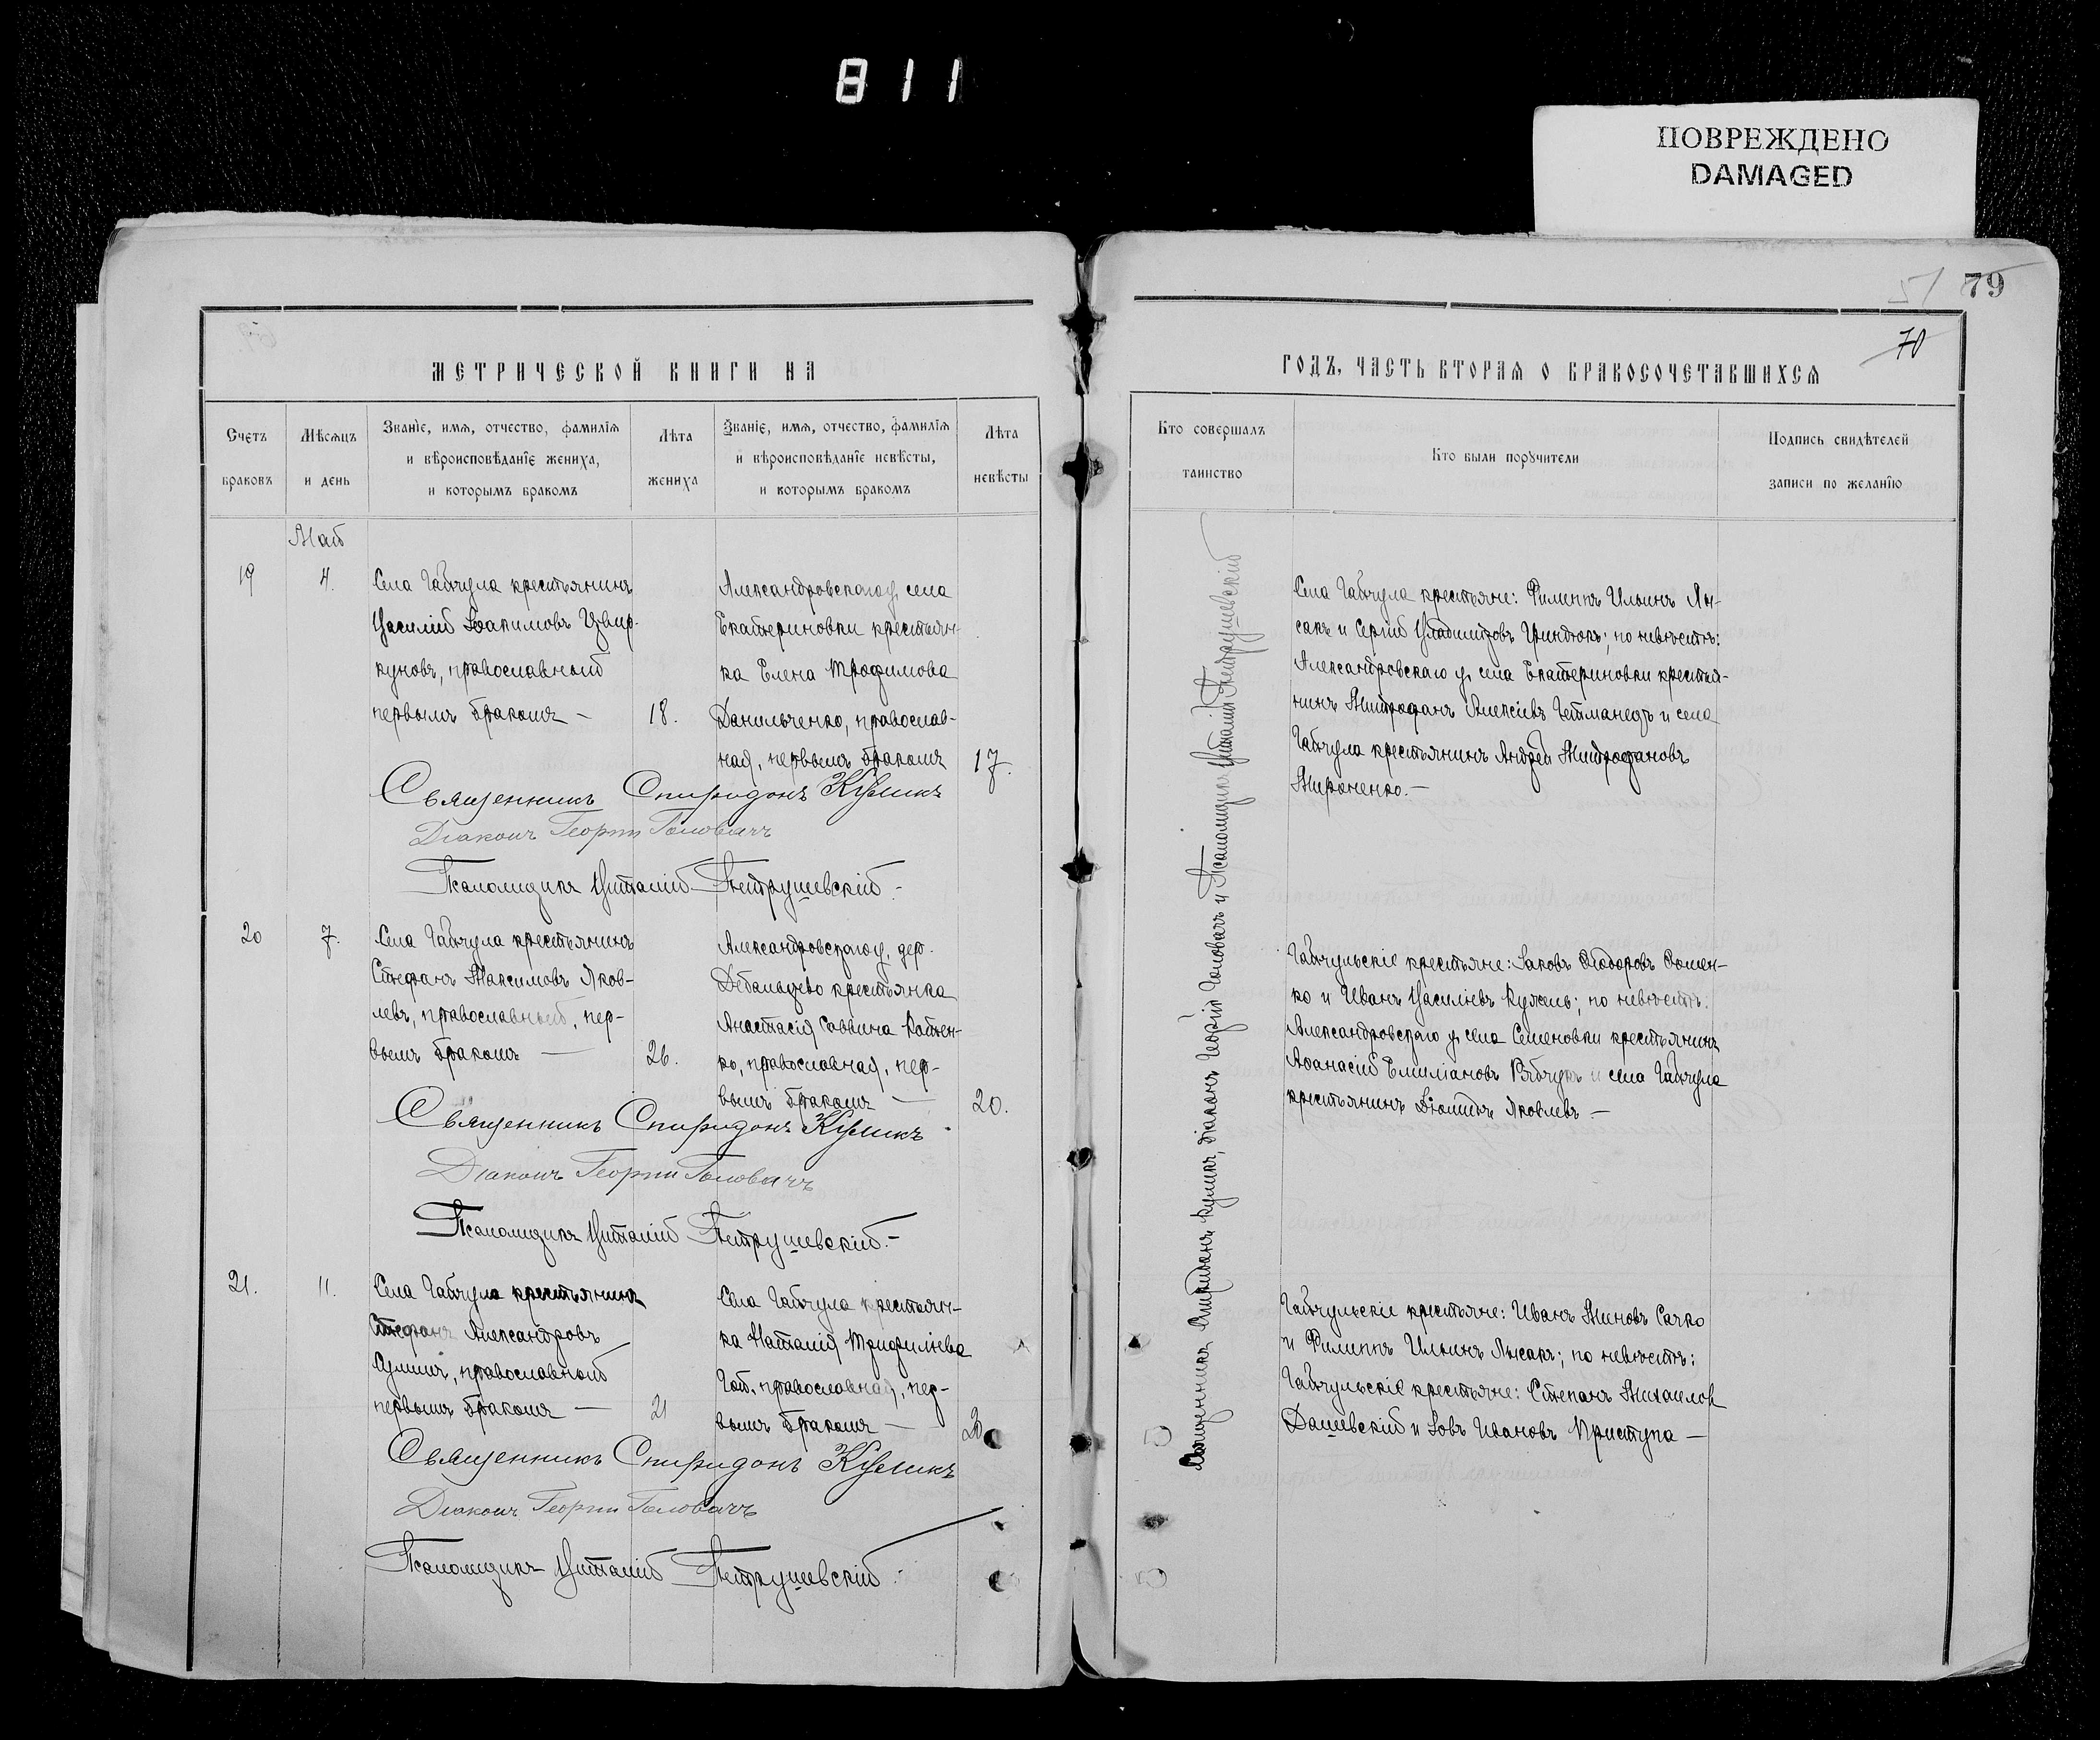 811
ПОВРЕЖДЕНО
DAMAGED
79
70
МЕТРИЧЕСКОЙ КНИГИ НА
Счетъ браковъ
Мѣсяцъ и день
Званіе, имя, отчество, фамилія
и вѣроисповѣданіе жениха,
и которымъ бракомъ
Лѣта жениха
Званіе, имя, отчество, фамилія
и вѣроисповѣданіе невѣсты,
и которымъ бракомъ
Лѣта невѣсты
Май
19
4.
Села Гайчула крестьянинъ
Василій Іоакимовъ Цвир-
куновъ, православный
первымъ бракомъ —
18.
Александровскаго у, села
Екатериновки крестьян-
ка Елена Трофимова
Данильченко, православ-
ная, первымъ бракомъ
17.
Священникъ Спиридонъ Куликъ
Діаконъ Георгій Головачъ
Псаломщикъ Виталій Петрушевскій.-
20
7.
Села Гайчула крестьянинъ
Стефанъ Максимовъ Яков-
левъ, православный, пер-
вымъ бракомъ —
26.
Александровскаго у, дер.
Дебальцево крестьянка
Анастасія Саввина Котен-
ко, православная, пер-
вымъ бракомъ —
20.
Священникъ Спиридонъ Куликъ
Діаконъ Георгій Головачъ
Псаломщикъ Виталій Петрушевскій.-
21.
11.
Села Гайчула крестьянинъ
Стефанъ Александровъ
православный
первымъ бракомъ —
21
Села Гайчула крестьян-
ка Наталія Трифиліева
православная, пер-
вымъ бракомъ —
20
Священникъ Спиридонъ Куликъ
Діаконъ Георгій Головачъ
Псаломщикъ Виталій Петрушевскій.
ГОДЪ, ЧАСТЬ ВТОРАЯ О БРАКОСОЧЕТАВШИХСЯ
Кто совершалъ таинство
Кто были поручители
Подпись свидѣтелей
записи по желанію
Священникъ Спиридонъ Куликъ, діаконъ Георгій Головачъ и Псаломщикъ Виталій Петрушевскій
Села Гайчула крестьяне: Филиппъ Ильинъ Лы-
сакъ и Сергій Владиміровъ Гриндюкъ; по невѣстѣ:
Александровскаго у, села Екатериновки крестья-
нинъ Митрофанъ Алексіевъ Гетманецъ и села
Гайчула крестьянинъ Андрей Митрофановъ
Мироненко. —
Гайчульскіе крестьяне: Іаковъ Ѳеодоровъ Ѳомен-
ко и Иванъ Василіевъ Кужель; по невѣстѣ:
Александровскаго у, села Семеновки крестьянинъ
Аѳанасій Емиліановъ Рябчукъ и села Гайчула
крестьянинъ Яковлевъ —
Гайчульскіе крестьяне: Иванъ Миновъ Сачко
и Филиппъ Ильинъ Лысакъ; по невѣстѣ:
Гайчульскіе крестьяне: Степанъ Михаилов
Дашевскій и Іовъ Ивановъ Приступа —